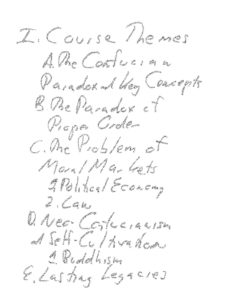 I. Course Themes
A. The Confucian
Paradox and Key Concepts
B. The Paradox of
Proper Order
C. The Problem of
Moral Markets
1. Political Economy
2. Law
D. Neo-Confucianism
and Self-Cultivation
1. Buddhism
E. Lasting Legacies